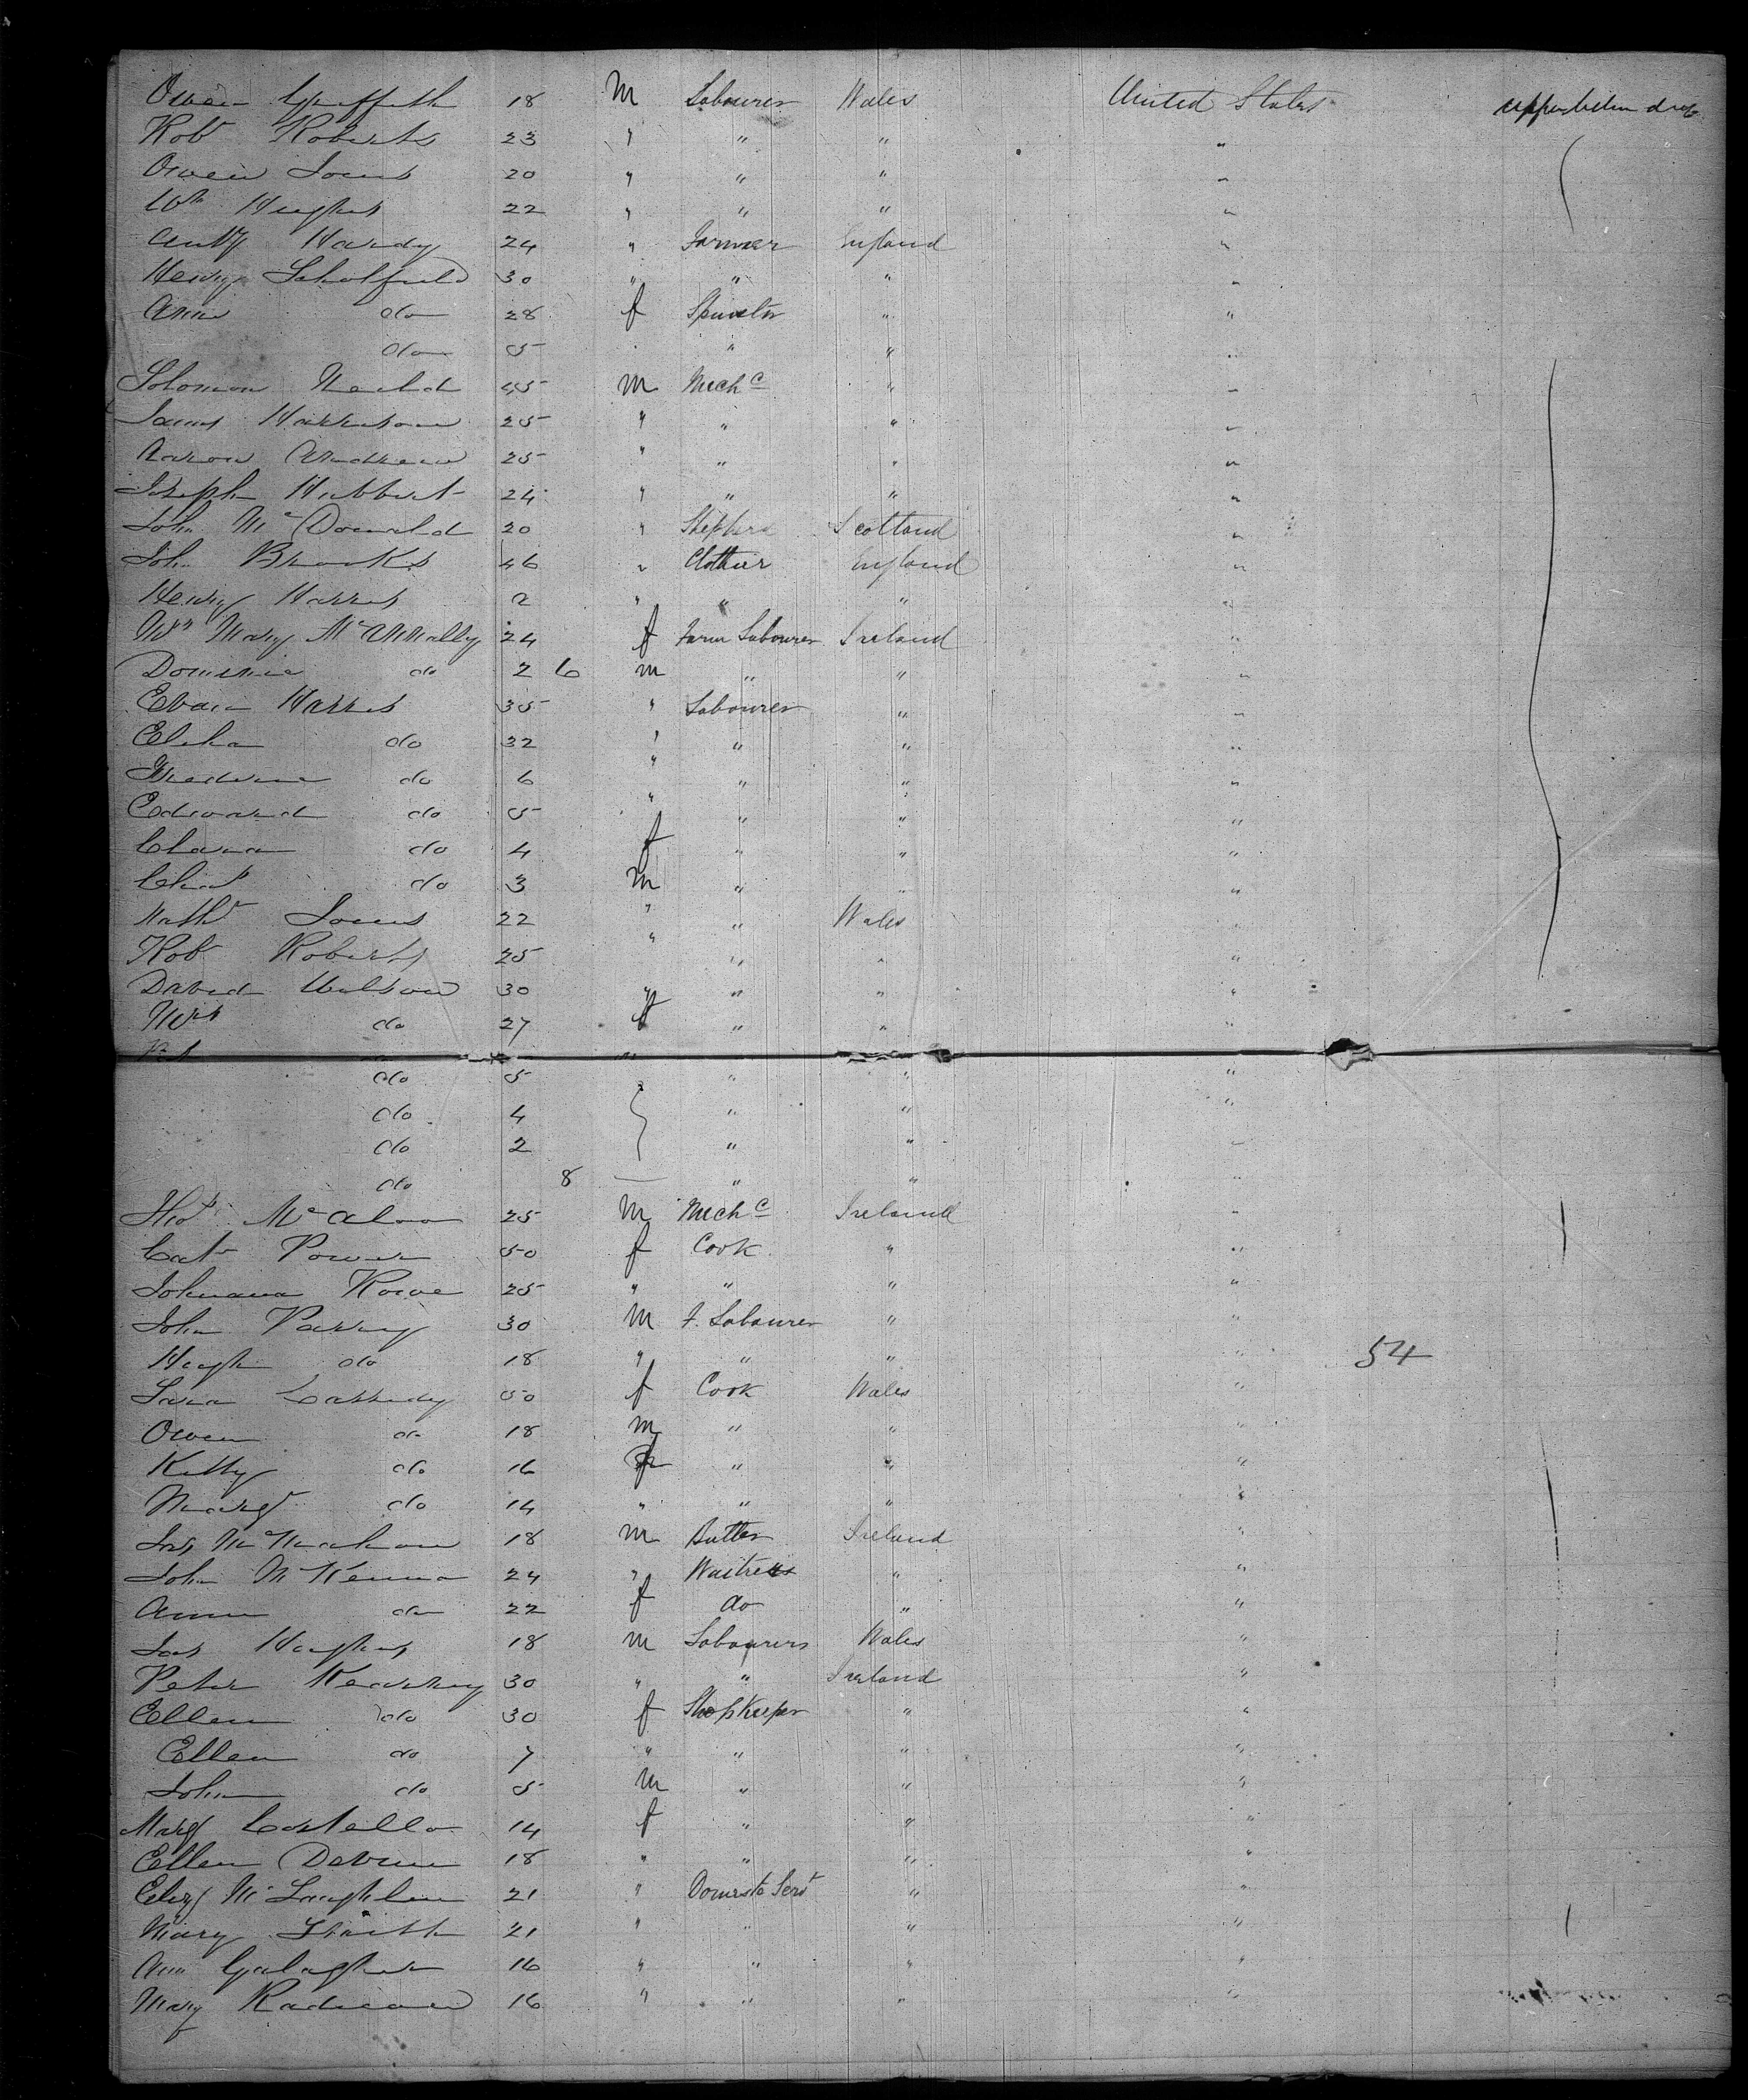 Owen Griffith 18 M Labourer Wales United States upper between decks
Robt Roberts 23 " " " "
Owen Jones 20 " " " "
Wm Hughes 22 " " " "
Anty Hardy 24 " Farmer England "
Henry Scholfield 30 " " " "
Ann do 28 f Spinster " "
do 5 " " "
Solomon Neild 45 M Mechc " "
James Harrison 25 " " " "
Aaron Andrew 25 " " " "
Joseph Hibbert 24 " " " "
John McDonald 20 " Shepherd Scotland "
John Brooks 46 " Clothier England "
Henry Harris 2 " " " "
Mrs Mary McAnnally 24 f Farm Labourer Ireland "
Dominic do 2 6 m " " "
Evan Harris 35 " Labourer " "
Eliza do 32 " " " "
do 6 " " " "
Edward do 5 " " " "
Clara do 4 f " " "
Chas do 3 M " " "
Jones 22 " " Wales "
Robt Roberts 25 " " " "
David Wilson 30 " " " "
Mrs do 27 f " " "
do 5 " " "
do 4 " " "
do 2 " " "
do 8 " " "
Thos McAloon 25 M Mechc Ireland "
Cath Power 50 f Cook " "
Johanna Rowe 25 " " " "
John 30 M F. Labourer " "
Hugh do 18 " " " " 54
50 f Cook Wales "
Owen do 18 M " " "
Kitty do 16 f " " "
Margt do 14 " " " "
Jas McMahon 18 M Butler Ireland "
John McKenna 24 " Waitress " "
Ann do 22 f do " "
Jas Hughes 18 M Labourers Wales "
Peter Kearney 30 " " Ireland "
Ellen do 30 f Shopkeeper " "
Ellen do 7 " " " "
John do 5 M " " "
Margt Costello 14 f " " "
Ellen Devine 18 " " " "
Eliza McLaughlin 21 " Domestc Servt " "
Mary Smith 21 " " " "
Ann Galagher 16 " " " "
Mary 16 " " " "